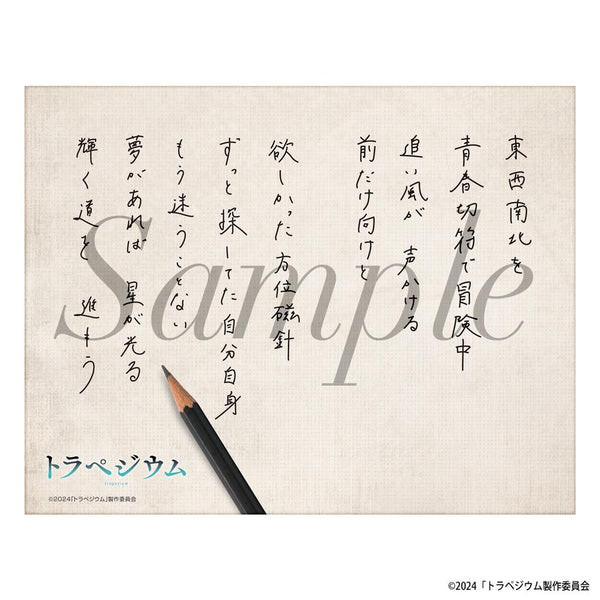 東西南北を
青春切符で冒険中
追い風が 声かける
前だけ向けと
欲しかった方位磁針
ずっと探してた自分自身
もう迷うことない
夢があれば 星が光る
輝く道を 進もう
Sample
トラペジウム
trapezium
©2024「トラペジウム」製作委員会
©2024「トラペジウム製作委員会